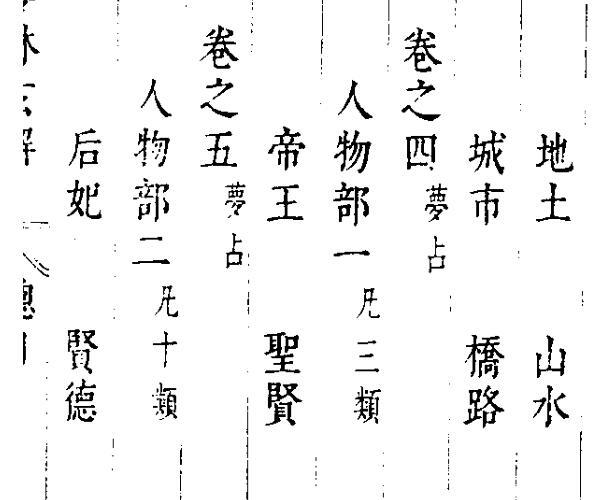 地土　山水
城市　橋路
卷之四　夢占
人物部一　凡三類
帝王　聖賢
卷之五　夢占
人物部二　凡十類
后妃　賢德
林玄解　總目